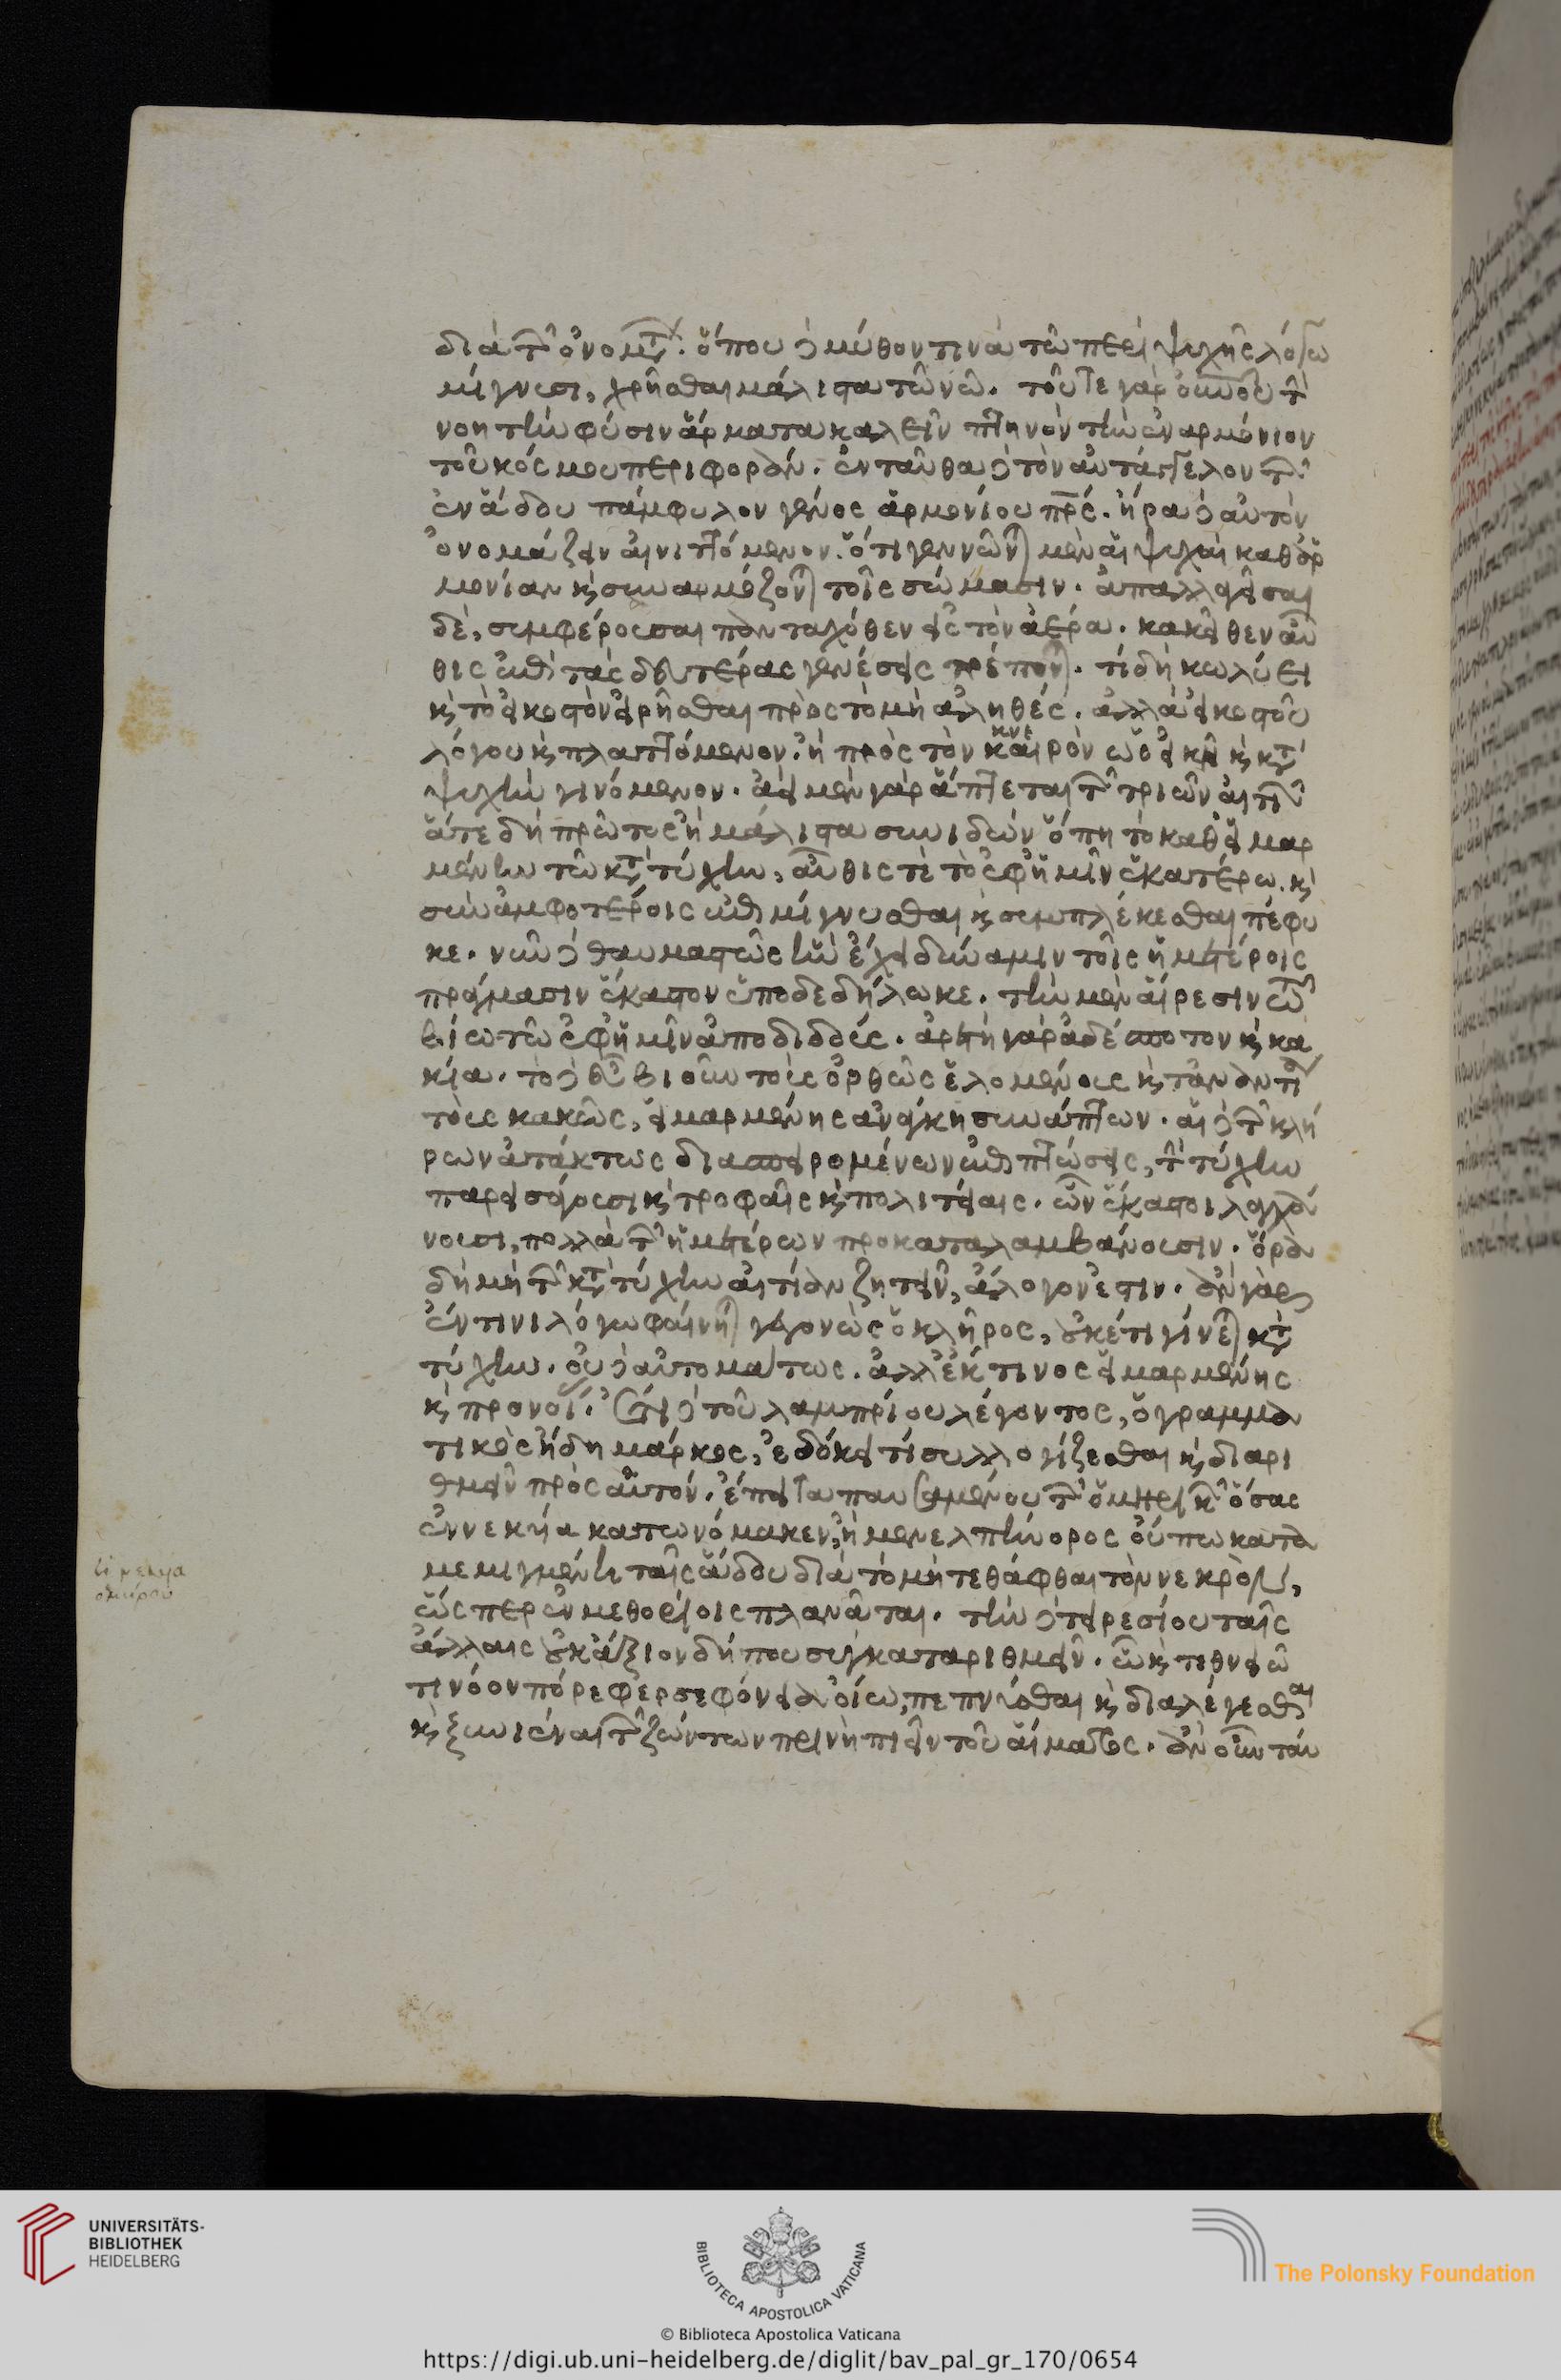 διὰ τῶν ὀνομάτων. ὅπου δὲ μῦθον τινὰ τῶ περὶ ψυχῆς λόγω
μίγνυσι, χρῆσθαι μάλιστα τῶ νῶ. τοῦ τε γὰρ οὐνοῦ τὴν
νοητὴν φύσιν ἅρματα καλεῖν πτηνὸν τὴν ἐναρμόνιον
τοῦ κόσμου περιφοράν. ἐνταῦθα δὲ τὸν αὐτάγγελον τῶν
ἐν ἅδου πάμφυλον γένος ἁρμονίου πρς. ἦρα δὲ αὐτὸν
ὀνομάζειν αἰνιττόμενον. ὅτι γεννῶνται μὲν αἱ ψυχαὶ καθ' ἁρ
μονίαν καὶ συναρμόζονται τοῖς σώμασιν. ἀπαλλαγεῖσαι
δὲ, συμφέρουσαι πανταχόθεν εἰς τὸν ἀέρα. κακεῖθεν αὖ
θις ἐπὶ τὰς δευτέρας γενέσεις τρέπονται. τί δὴ κωλύει
καὶ τὸ εἰκοστὸν εἰρῆσθαι πρὸς τὸ μὴ ἀληθές. ἀλλὰ εἰκοστοῦ
λόγου καὶ πλαττόμενον. ἢ πρὸς τὸν καιρὸν ὡς εἰκῆ καὶ κατὰ
ψυχὴν γινόμενον. ἀεὶ μὲν γὰρ ἅπτεται τῶν τριῶν αἰτιῶν
ἅτε δὴ πρῶτος ἢ μάλιστα συνιδὼν ὅπη τὸ καθ' εἱμαρ
μένην τῶ κατὰ τύχην, αὖθις τὲ τὸ ἐφ' ἡμῖν ἑκατέρω. καὶ
συναμφοτέροις ἐπιμίγνυσθαι καὶ συμπλέκεσθαι πέφυ
κε. νῦν δὲ θαυμαστῶς ἣν ἔχει δύναμιν τοῖς ἡμετέροις
πράγμασιν ἕκαστον ὑποδεδήλωκε. τὴν μὲν αἵρεσιν τῶν
βίω τῶ ἐφ' ἡμῖν ἀποδιδούς. ἀρετὴ γὰρ ἀδέσποτον καὶ κα
κία. τὸ δὲ εὖ βιοῦν τοὺς ὀρθῶς ἑλομένους καὶ τἀναντία
τοὺς κακῶς, εἱμαρμένης ἀνάγκη συνάπτων. αἱ δὲ τῶν κλή
ρων ἀτάκτως διασπειρομένων ἐπιπτώσεις, τὴν τύχην
παρεισάγουσι καὶ τροφαῖς καὶ πολιτείαις. ὧν ἕκαστοι λαγχά
νουσι, πολλὰ τῶν ἡμετέρων προκαταλαμβάνουσιν. ὅρα
δὴ μὴ τῶν κατὰ τύχην αἰτίαν ζητεῖν, ἄλογον ἐστιν. ἂν γὰρ
ἔν τινι λόγω φαίνηται γεγονὼς ὁ κλῆρος, οὐκέτι γίνεται κατὰ
τύχην. οὐδὲ αὐτομάτως. ἀλλ' ἔκ τινος εἱμαρμένης
καὶ προνοίας. ἔτι δὲ τοῦ λαμπρίου λέγοντος, ὁ γραμμα
τικὸς ἤδη μάρκος, ἐδόκει τί συλλογίζεσθαι καὶ διαρι
θμεῖν πρὸς αὑτόν. ἔπειτα παυσαμένου τῶν ὁμηρικῶν ὅσας
ἐν νεκυία κατωνόμακεν, ἡ μὲν ἐλπήνορος οὔπω κατα
μεμιγμένη ταῖς ἅδου διὰ τὸ μὴ τεθάφθαι τὸν νεκρὸν,
ὥσπερ ἐν μεθορίοις πλανᾶται. τὴν δὲ τειρεσίου ταῖς
ἄλλαις οὐκ ἄξιον δήπου συγκαταριθμεῖν. ᾧ καὶ τεθνειῶ
τι νόον πόρε φερσεφόνεια οἴω, πεπνῦσθαι καὶ διαλέγεσθαι
καὶ ξυνιέναι τῶν ζώντων πρινὴ πιεῖν τοῦ αἵματος. ἂν οὖν ταύ
νέκυια
ὁμήρου
UNIVERSITÄTS-
BIBLIOTHEK
HEIDELBERG
BIBLIOTECA APOSTOLICA VATICANA
The Polonsky Foundation
© Biblioteca Apostolica Vaticana
https://digi.ub.uni-heidelberg.de/diglit/bav_pal_gr_170/0654